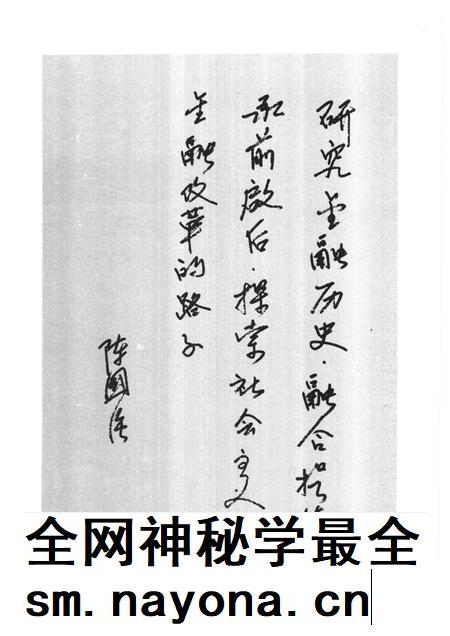 研究金融历史.融合
承前啟后.探索社会主义
金融改革的路子
陈國
全网神秘学最全
sm.nayona.cn